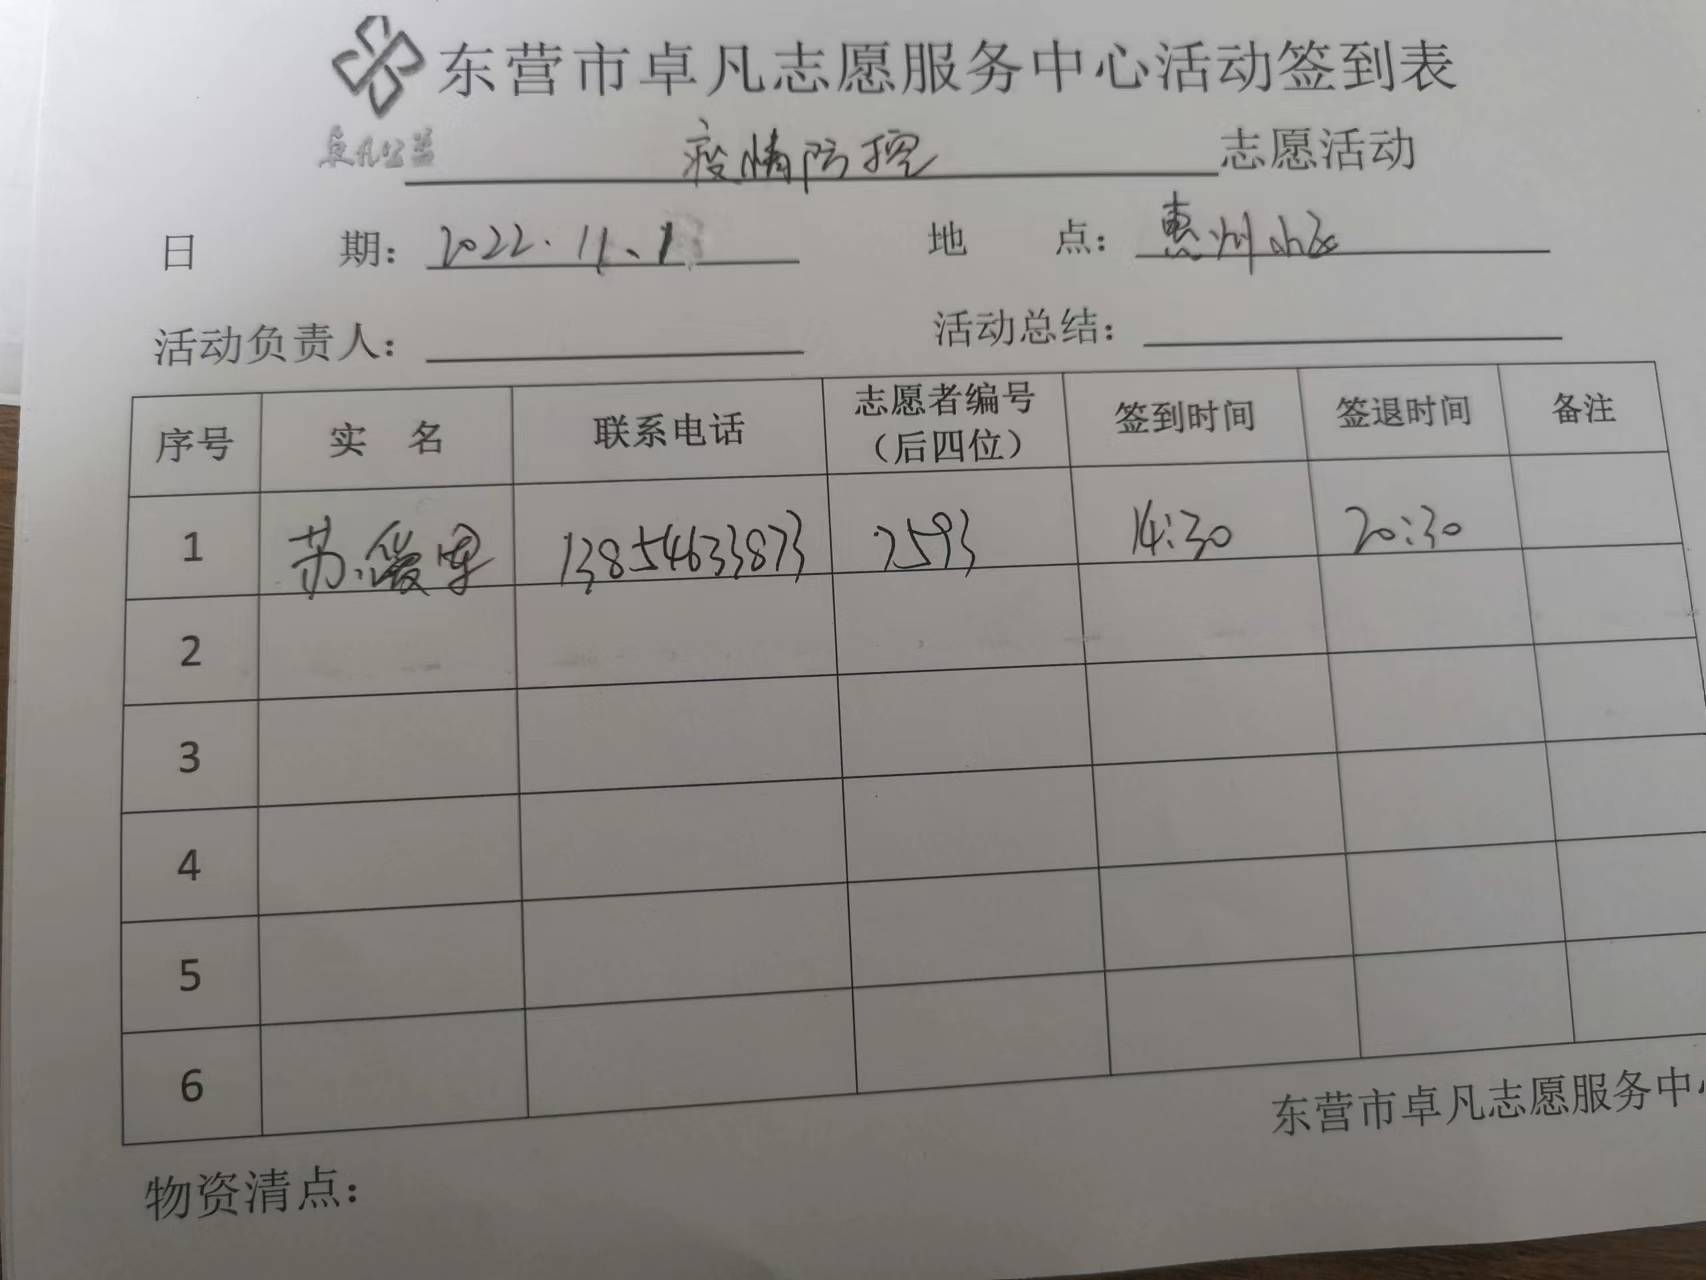 东营市卓凡志愿服务中心活动签到表
卓凡公益
疫情防控 志愿活动
日 期: 2022.11.1 地 点: 惠州小区
活动负责人: 活动总结:
序号 实 名 联系电话 志愿者编号（后四位） 签到时间 签退时间 备注
1 苏爱军 13854633873 7593 14:30 20:30
2
3
4
5
6
东营市卓凡志愿服务中
物资清点: